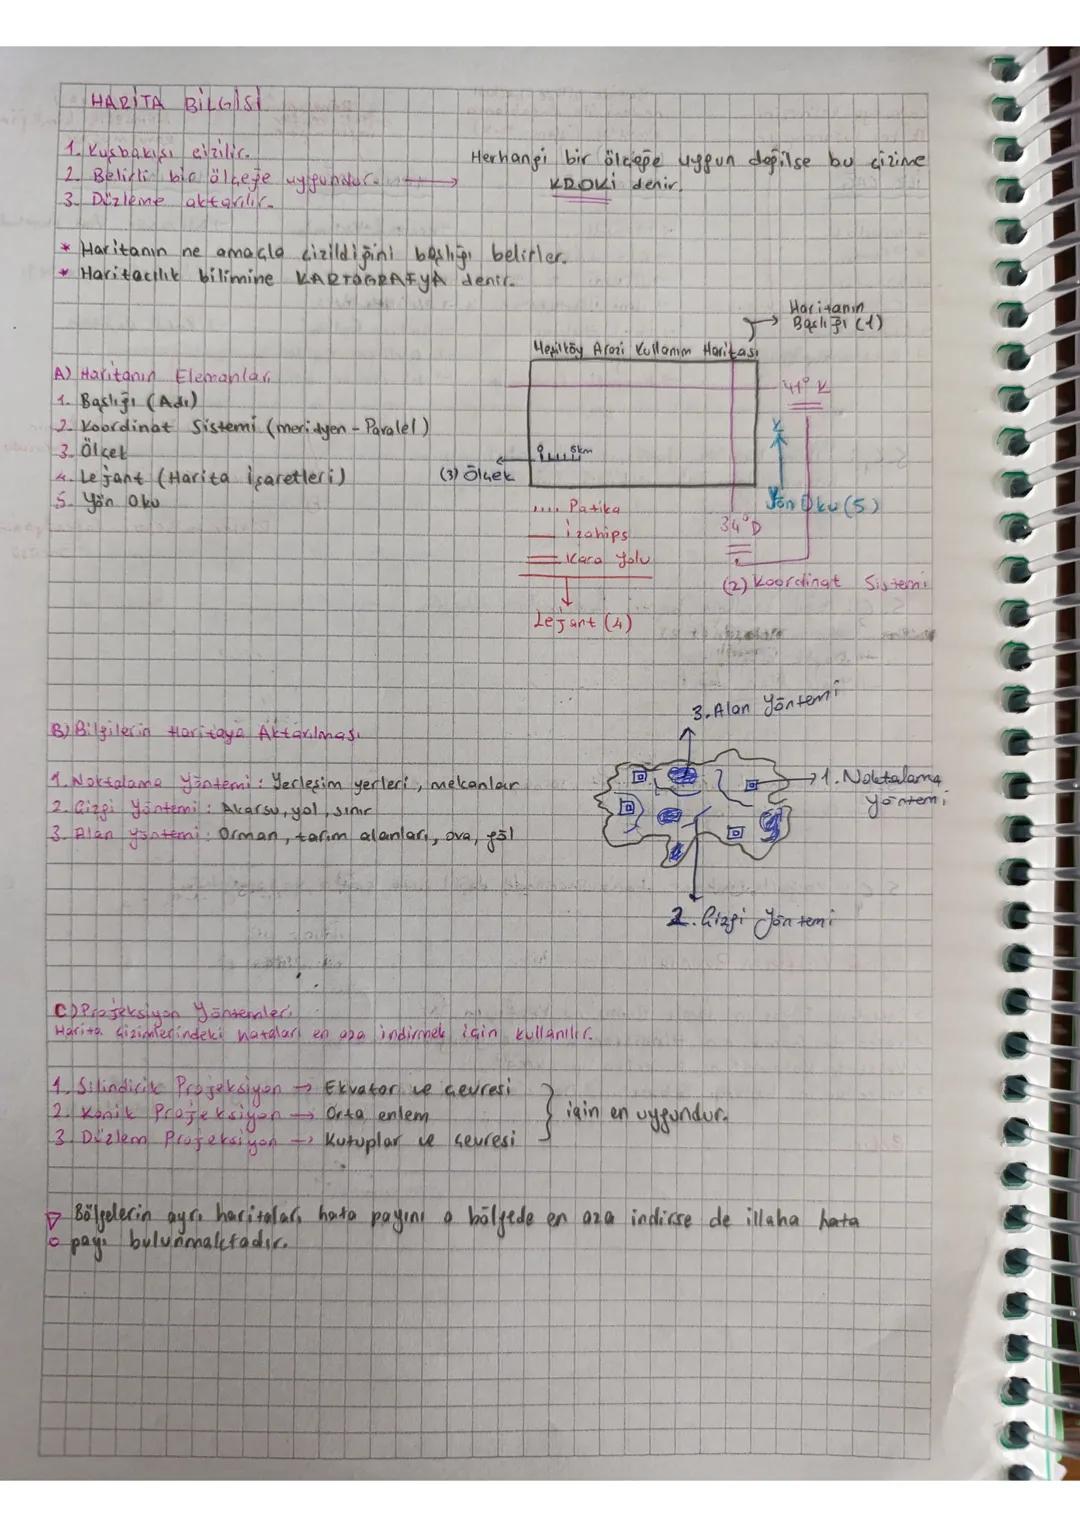 HARİTA BİLGİSİ
1. Kuşbakışı çizilir.
2. Belirli bir ölçeğe uygundur.
3. Düzleme aktarılır.
Herhangi bir ölçeğe uygun değilse bu çizime
KROKİ denir.
* Haritanın ne amaçla çizildiğini başlığı belirler.
* Haritacılık bilimine KARTOGRAFYA denir.
Haritanın
Başlığı (1)
Yeşilköy Arazi Kullanım Haritası
A) Haritanın Elemanları
1. Başlığı (Adı)
2. Koordinat Sistemi (meridyen - Paralel)
3. Ölçek
4. Lejant (Harita İşaretleri)
5. Yön Oku
41° K
5km
(3) Ölçek
Yön Oku (5)
34° D
Patika
izohips
Kara Yolu
Lejant (4)
(2) Koordinat Sistemi
B) Bilgilerin Haritaya Aktarılması
3. Alan Yöntemi
1. Noktalama Yöntemi : Yerleşim yerleri, mekanlar
2. Çizgi Yöntemi : Akarsu, yol, sınır
3. Alan Yöntemi : Orman, tarım alanları, ova, göl
1. Noktalama
yöntemi
2. Çizgi Yöntemi
C) Projeksiyon Yöntemleri
Harita çizimlerindeki hataları en aza indirmek için kullanılır.
1. Silindirik Projeksiyon → Ekvator ve çevresi
2. Konik Projeksiyon → Orta enlem
3. Düzlem Projeksiyon → Kutuplar ve çevresi
için en uygundur.
Bölgelerin ayrı haritaları hata payını o bölgede en aza indirse de illaha hata
payı bulunmaktadır.